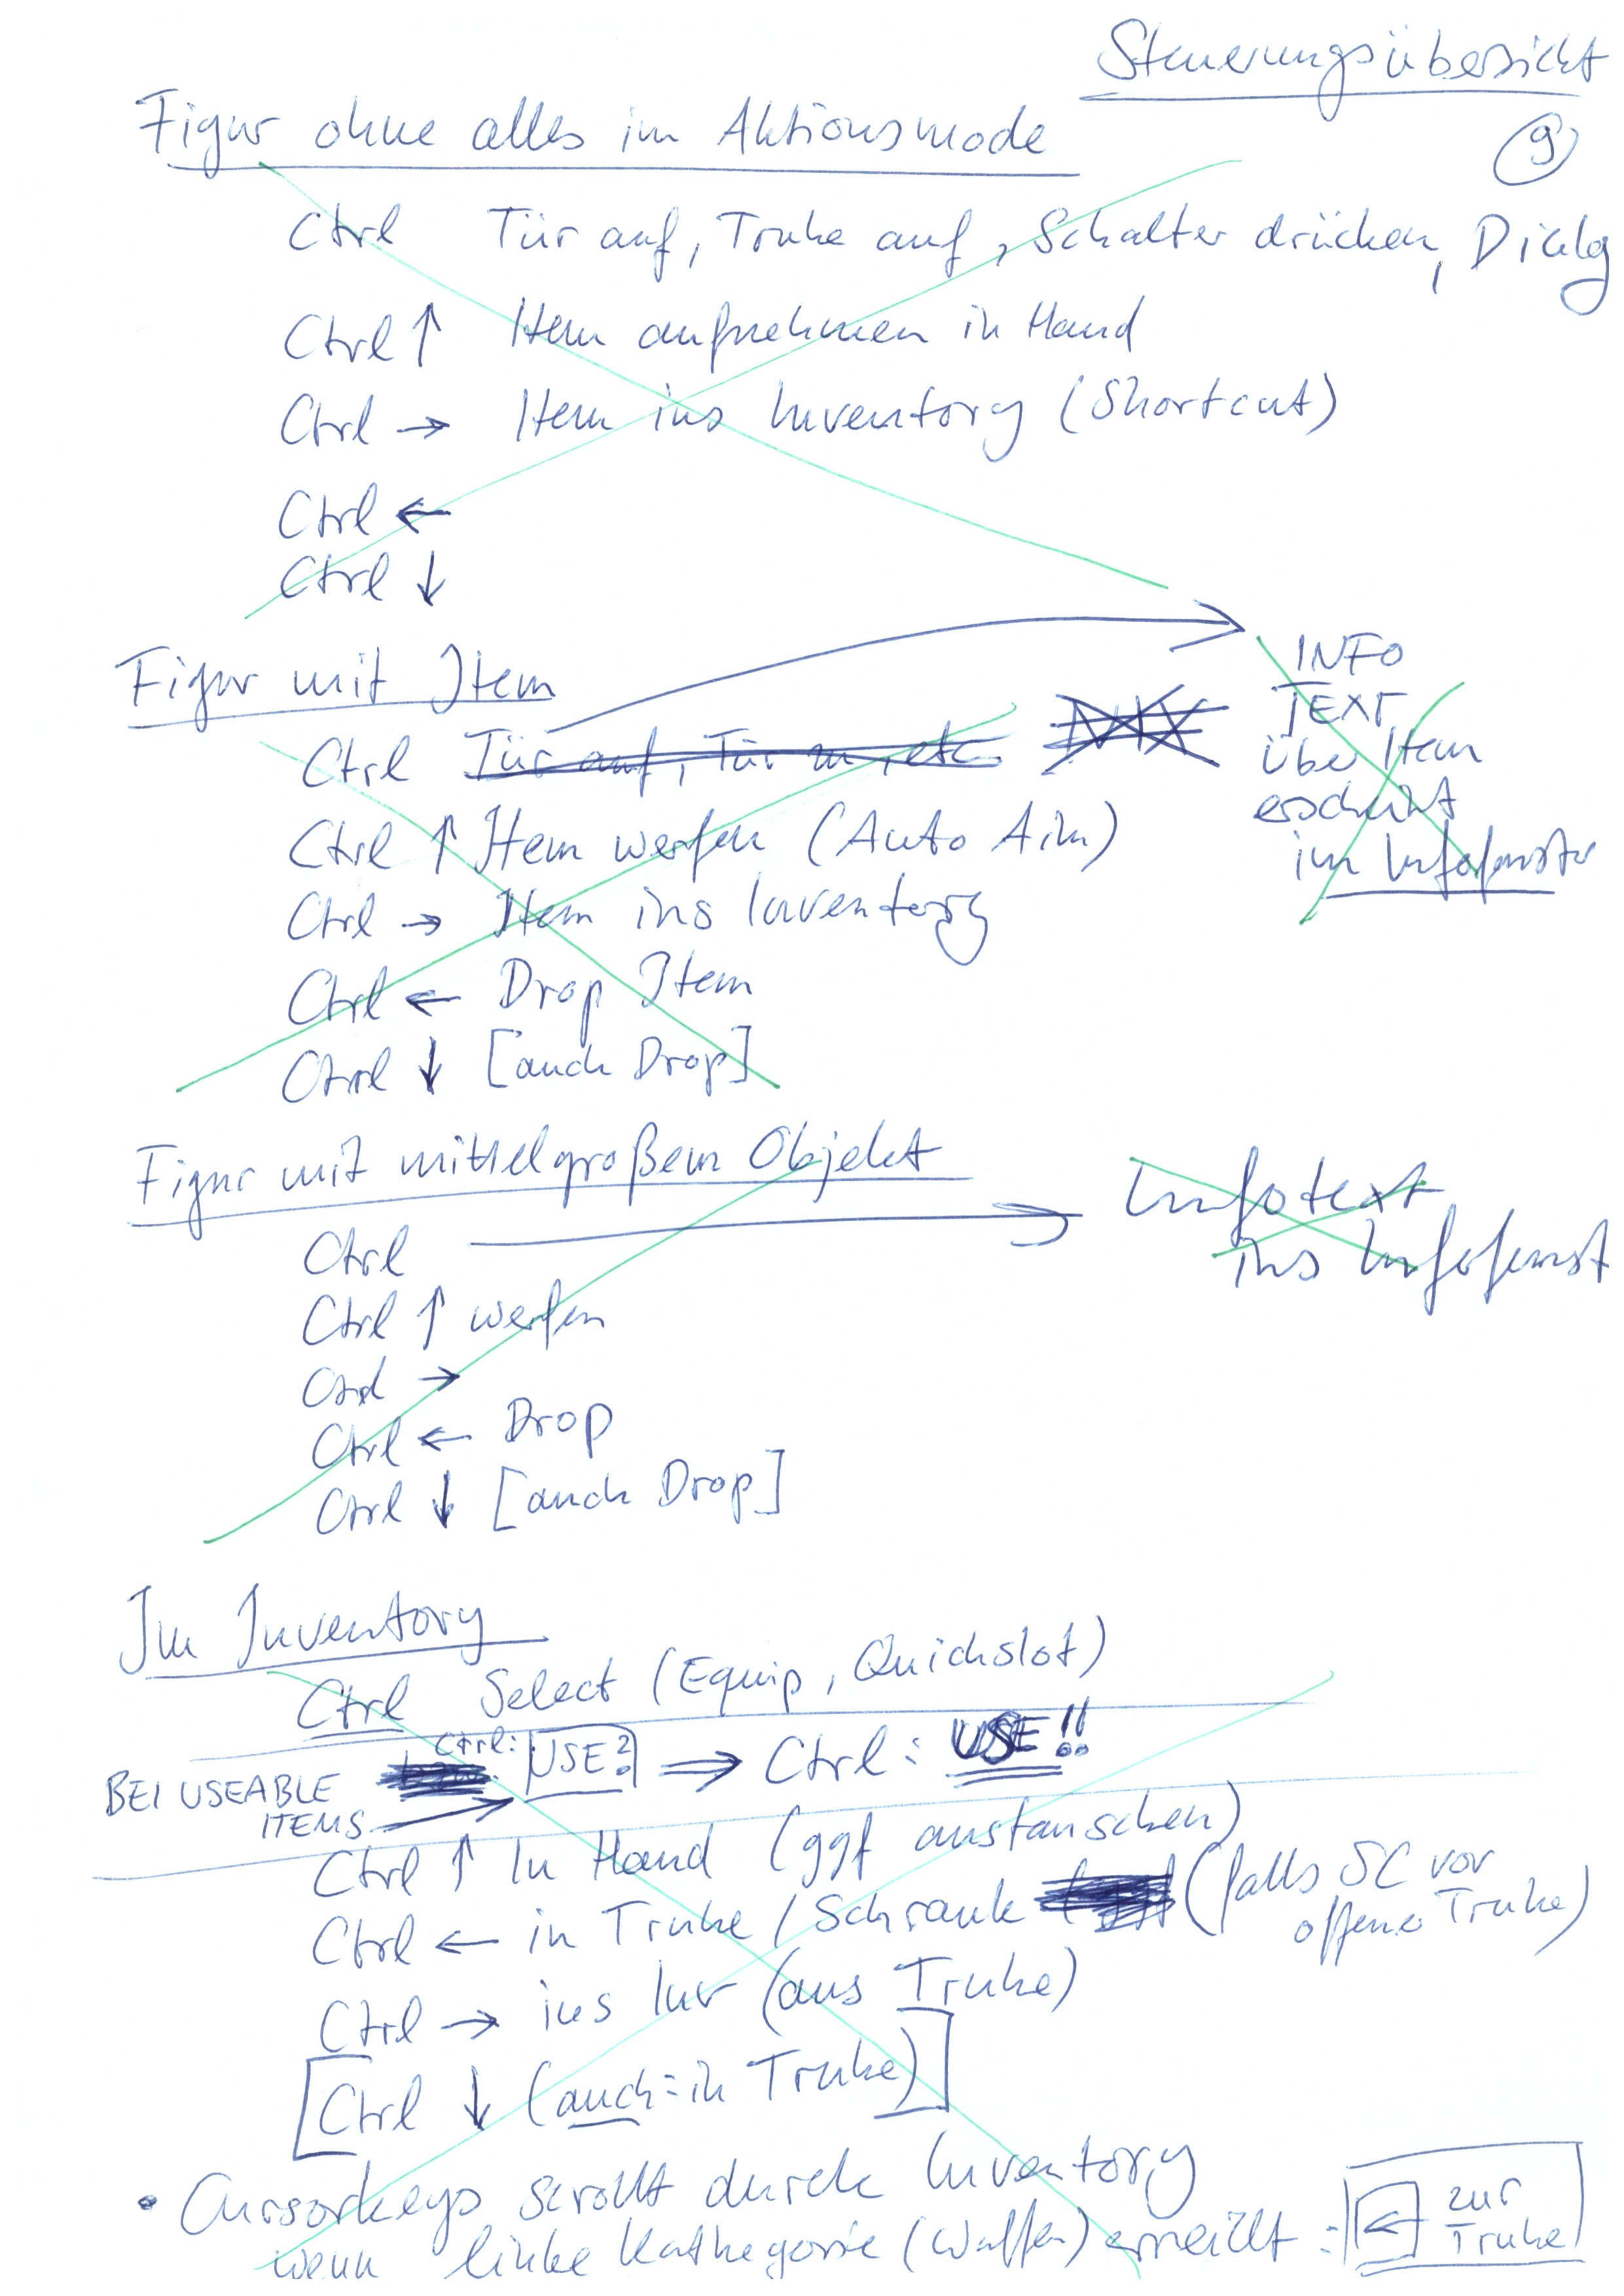 Steuerungsübersicht
9
Figur ohne alles im Aktionsmode
Ctrl Tür auf, Truhe auf, Schalter drücken, Dialg
Ctrl ↑ Item aufnehmen in Hand
Ctrl → Item ins Inventory (Shortcut)
Ctrl ←
Ctrl ↓
Figur mit Item
Ctrl Tür auf, Tür zu, etc. NIX
INFO
TEXT
über Item
erscheint
im Infofenster
Ctrl ↑ Item werfen (Auto Aim)
Ctrl → Item ins Inventory
Ctrl ← Drop Item
Ctrl ↓ [auch Drop]
Figur mit mittelgroßem Objekt
Ctrl → Infotext
ins Infofenst
Ctrl ↑ werfen
Ctrl →
Ctrl ← Drop
Ctrl ↓ [auch Drop]
Im Inventory
Ctrl Select (Equip, Quickslot)
BEI USEABLE
ITEMS → Ctrl: USE? ⇒ Ctrl: USE!!
Ctrl ↑ In Hand (ggf austauschen)
Ctrl ← in Truhe / Schrank (falls SC vor
offener Truhe)
Ctrl → ins Inv (aus Truhe)
[Ctrl ↓ (auch = in Truhe)]
• Cursorkeys scrollt durch Inventory
wenn linke Kathegorie (Waffen) erreicht = ← zur
Truhe